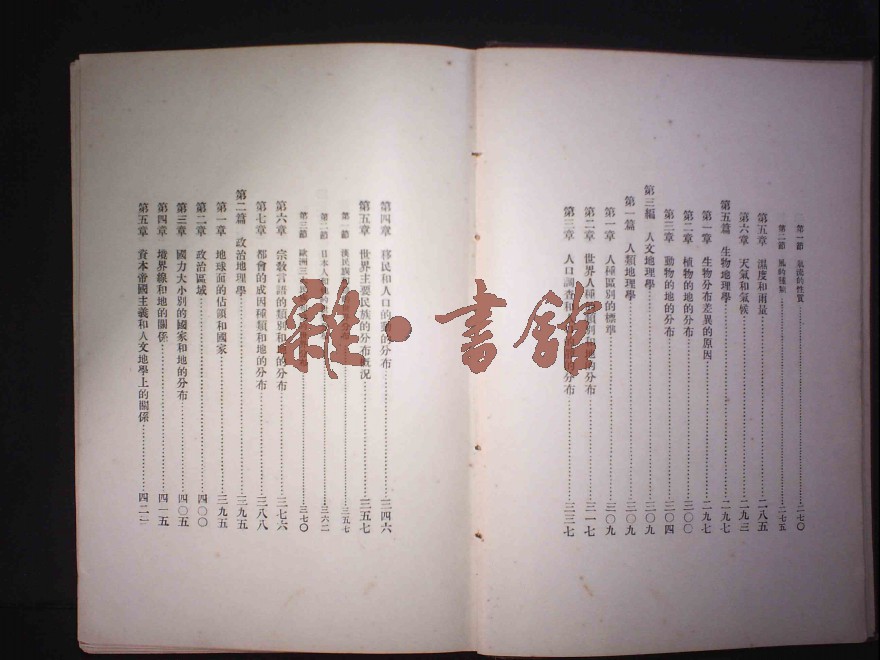 第一節 氣流的性質……二七〇
第二節 風的種類……二七五
第五章 濕度和雨量……二八五
第六章 天氣和氣候……二九三
第五篇 生物地理學……二九七
第一章 生物分布差異的原因……二九七
第二章 植物的地的分布……三〇〇
第三章 動物的地的分布……三〇四
第三編 人文地理學……三〇九
第一篇 人類地理學……三〇九
第一章 人種區別的標準……三〇九
第二章 世界人種類別和地的分布……三一七
第三章 人口調查和 的分布……三三七
第四章 移民和人口的 的分布……三四六
第五章 世界主要民族的分布概況……三五七
第一節 漢民族……三五七
第二節 日本人……三六二
第三節 歐洲三大民……三七〇
第六章 宗教言語的類別和地的分布……三七六
第七章 都會的成因種類和地的分布……三八八
第二篇 政治地理學……三九五
第一章 地球面的佔領和國家……三九五
第二章 政治區域……四〇〇
第三章 國力大小別的國家和地的分布……四〇五
第四章 境界線和地的關係……四一五
第五章 資本帝國主義和人文地學上的關係……四二
雜·書館